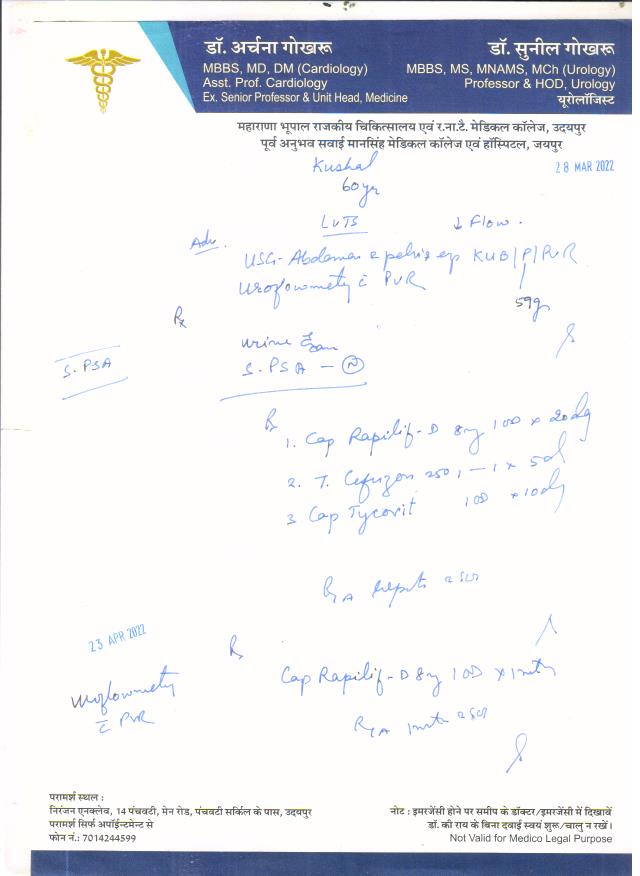 डॉ. अर्चना गोखरू
MBBS, MD, DM (Cardiology)
Asst. Prof. Cardiology
Ex. Senior Professor & Unit Head, Medicine
डॉ. सुनील गोखरू
MBBS, MS, MNAMS, MCh (Urology)
Professor & HOD, Urology
यूरोलॉजिस्ट
महाराणा भूपाल राजकीय चिकित्सालय एवं र.ना.टै. मेडिकल कॉलेज, उदयपुर
पूर्व अनुभव सवाई मानसिंह मेडिकल कॉलेज एवं हॉस्पिटल, जयपुर
28 MAR 2022
Kushal
60yr
LUTS ↓ Flow.
Adv.
USG- Abdomen & pelvis KUB/P/PVR
Uroflowmetry c̄ PVR
59g
Rx
Urine Exam
S. PSA
S. PSA - N
R
1. Cap Rapilif-D 8mg 1OD x 20day
2. T. Cefuzon 250 1-1 x 5d
3 Cap Tycovit 1OD x 10day
R/A
23 APR 2022
R
Uroflowmetry
c̄ PVR
Cap Rapilif-D 8mg 1OD x 1mth
R/A 1mth
परामर्श स्थल :
निरंजन एनक्लेव, 14 पंचवटी, मेन रोड, पंचवटी सर्किल के पास, उदयपुर
परामर्श सिर्फ अपॉईन्टमेन्ट से
फोन नं.: 7014244599
नोट : इमरजेंसी होने पर समीप के डॉक्टर/इमरजेंसी में दिखावें
डॉ. की राय के बिना दवाई स्वयं शुरू/चालु न रखें।
Not Valid for Medico Legal Purpose